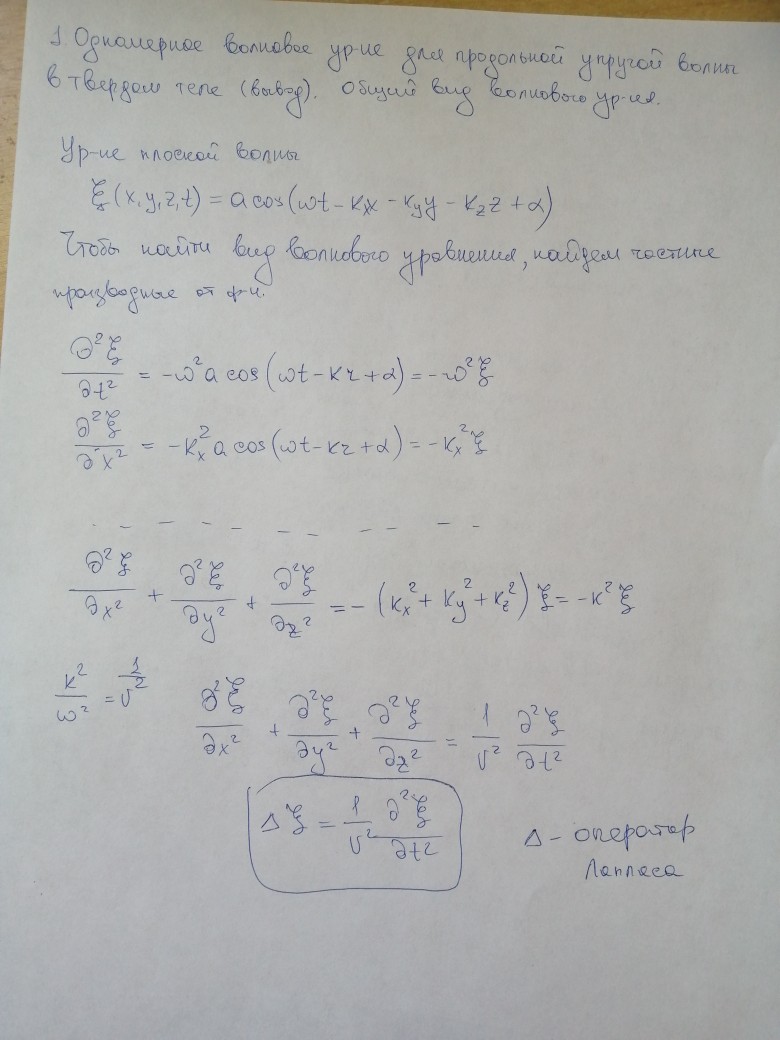 1. Одномерное волновое ур-ие для продольной упругой волны
в твердом теле (вывод). Общий вид волнового ур-ия.
Ур-ие плоской волны
ξ(x,y,z,t) = a cos(ωt - kₓx - k_y y - k_z z + α)
Чтобы найти вид волнового уравнения, найдем частные
производные от ф-и.
∂²ξ/∂t² = -ω²a cos(ωt - kr + α) = -ω²ξ
∂²ξ/∂x² = -kₓ²a cos(ωt - kr + α) = -kₓ²ξ
- - - - - - - - -
∂²ξ/∂x² + ∂²ξ/∂y² + ∂²ξ/∂z² = -(kₓ² + k_y² + k_z²)ξ = -k²ξ
k²/ω² = 1/v² ∂²ξ/∂x² + ∂²ξ/∂y² + ∂²ξ/∂z² = 1/v² ∂²ξ/∂t²
Δξ = 1/v² ∂²ξ/∂t² Δ - оператор
Лапласа